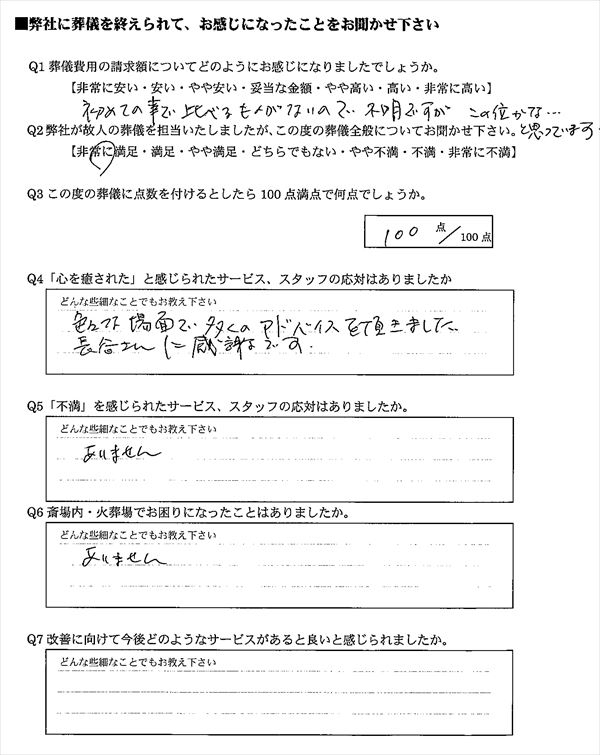 ■弊社に葬儀を終えられて、お感じになったことをお聞かせ下さい
Q1 葬儀費用の請求額についてどのようにお感じになりましたでしょうか。
【非常に安い・安い・やや安い・妥当な金額・やや高い・高い・非常に高い】
初めての事で比べるものがないので不明ですが この位かな…
と思っています
Q2 弊社が故人の葬儀を担当いたしましたが、この度の葬儀全般についてお聞かせ下さい。
【非常に満足・満足・やや満足・どちらでもない・やや不満・不満・非常に不満】
Q3 この度の葬儀に点数を付けるとしたら 100 点満点で何点でしょうか。
100 点/100 点
Q4「心を癒された」と感じられたサービス、スタッフの応対はありましたか
どんな些細なことでもお教え下さい
色々な場面で多くのアドバイスを頂きました。
長谷さんに感謝です。
Q5「不満」を感じられたサービス、スタッフの応対はありましたか。
どんな些細なことでもお教え下さい
ありません
Q6 斎場内・火葬場でお困りになったことはありましたか。
どんな些細なことでもお教え下さい
ありません
Q7 改善に向けて今後どのようなサービスがあると良いと感じられましたか。
どんな些細なことでもお教え下さい